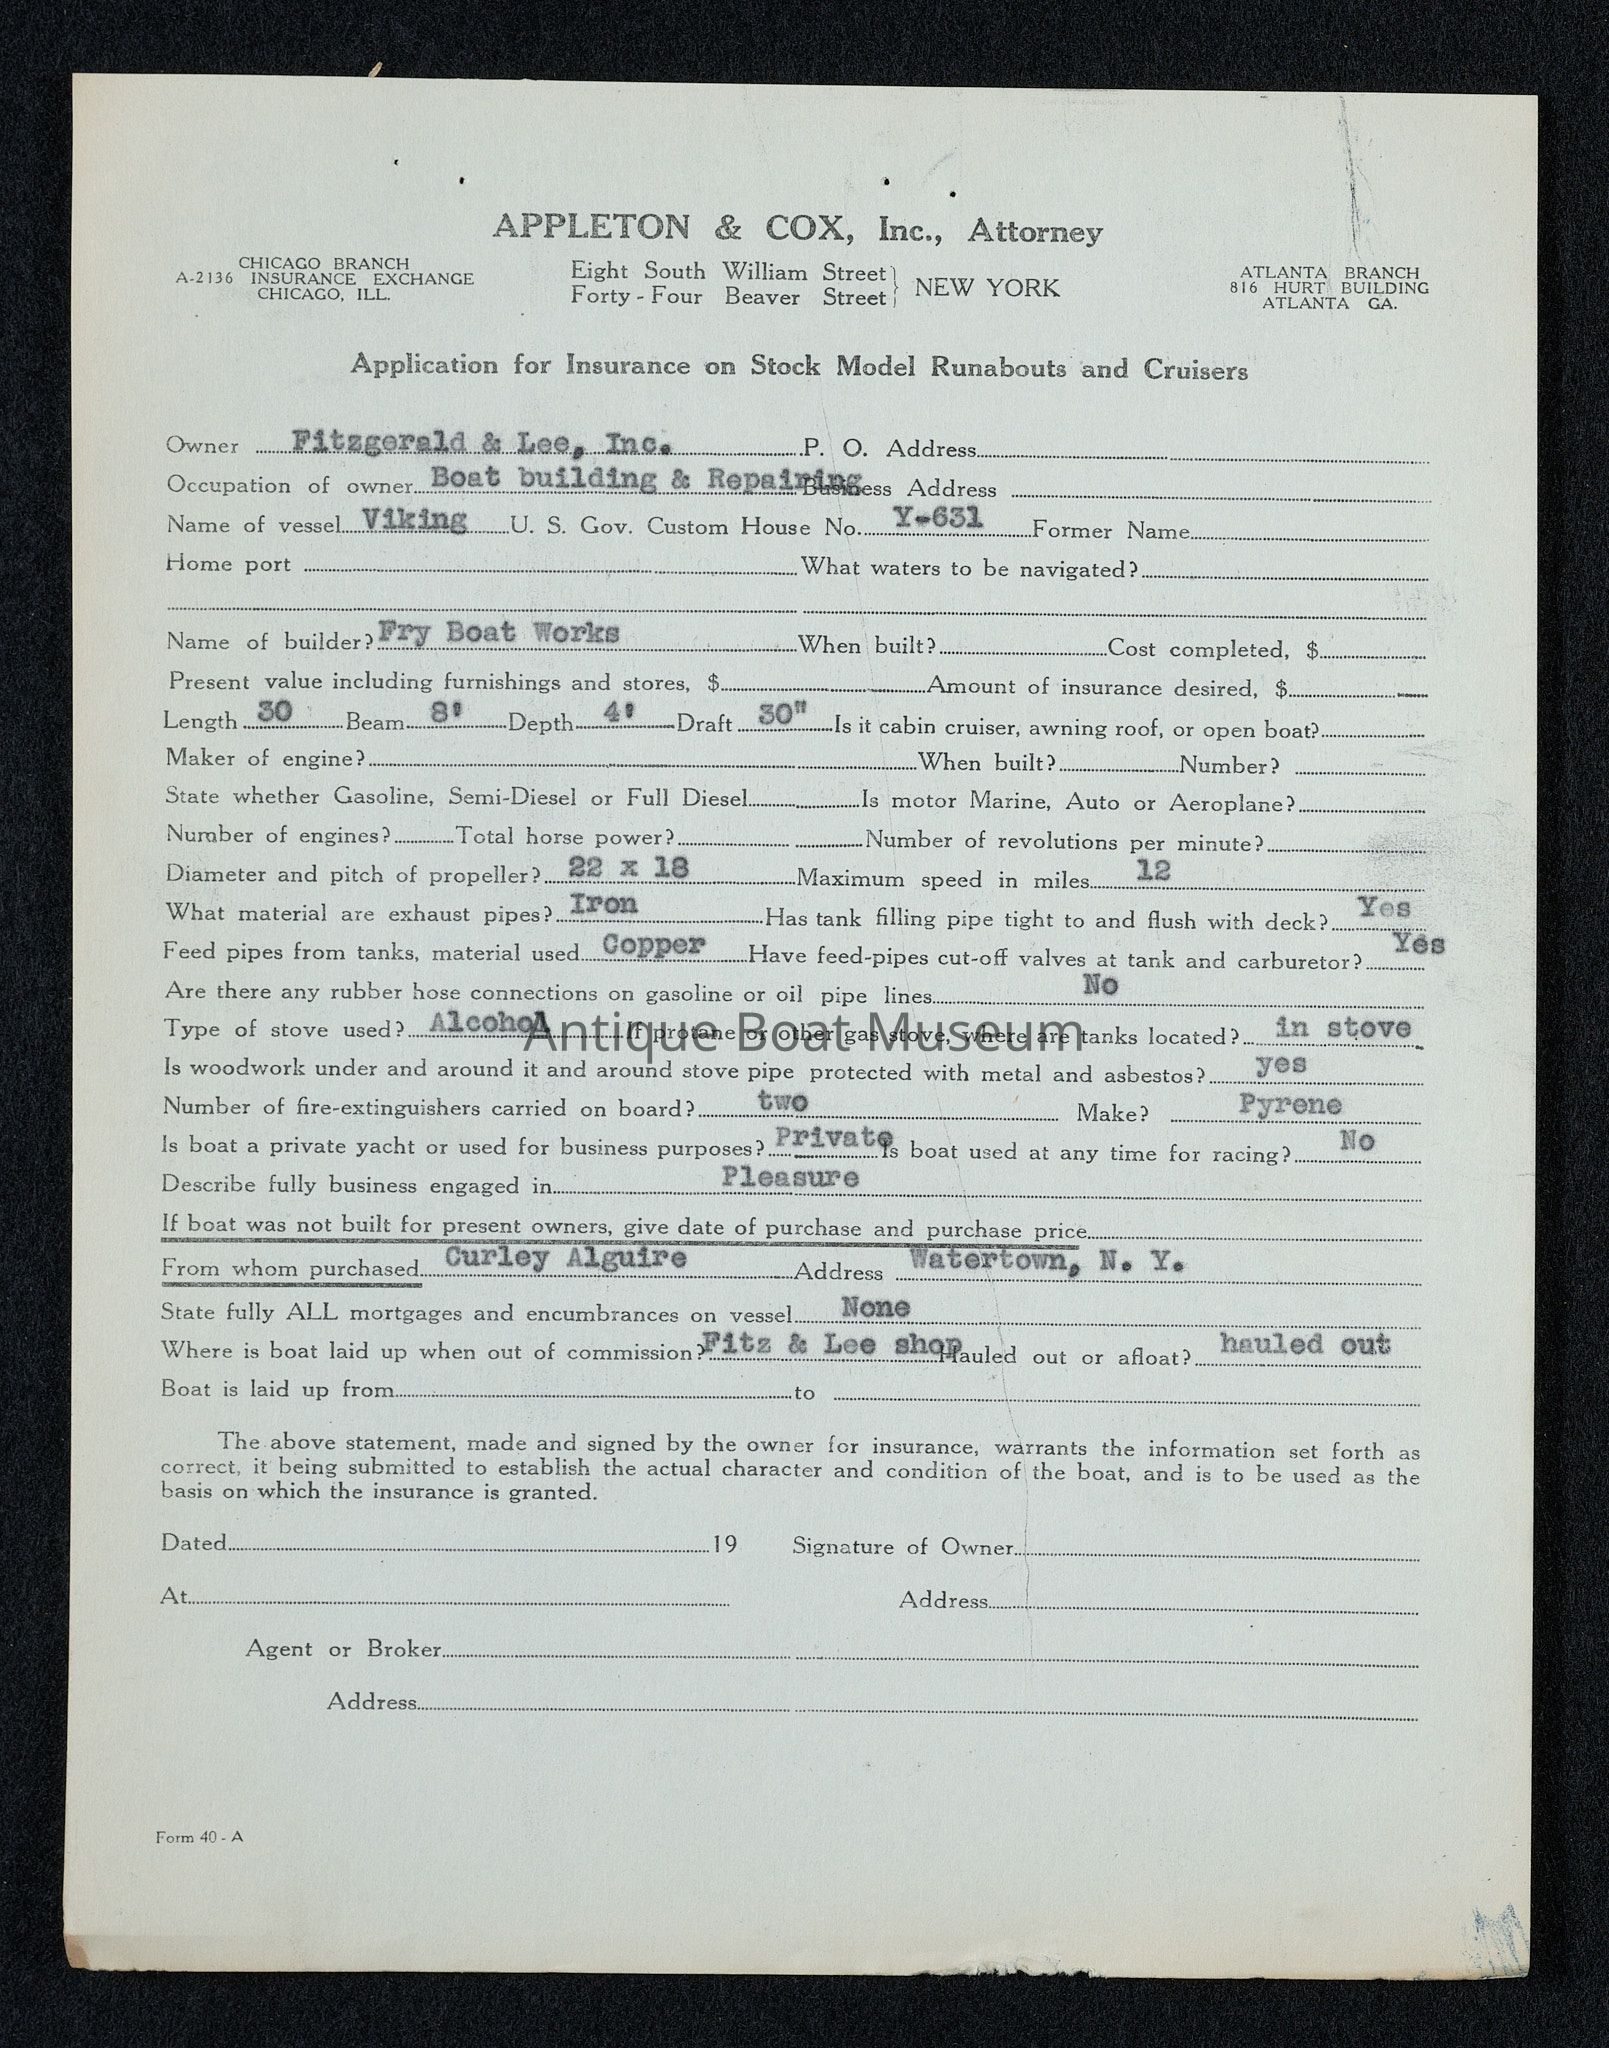 APPLETON & COX, Inc., Attorney
CHICAGO BRANCH
A-2136 INSURANCE EXCHANGE
CHICAGO, ILL.
Eight South William Street
Forty-Four Beaver Street
NEW YORK
ATLANTA BRANCH
816 HURT BUILDING
ATLANTA GA.
Application for Insurance on Stock Model Runabouts and Cruisers
Owner Fitzgerald & Lee, Inc. P. O. Address
Occupation of owner Boat building & Repairing Business Address
Name of vessel Viking U. S. Gov. Custom House No. Y-631 Former Name
Home port What waters to be navigated?
Name of builder? Fry Boat Works When built? Cost completed, $
Present value including furnishings and stores, $ Amount of insurance desired, $
Length 30 Beam 8' Depth 4' Draft 30" Is it cabin cruiser, awning roof, or open boat?
Maker of engine? When built? Number?
State whether Gasoline, Semi-Diesel or Full Diesel Is motor Marine, Auto or Aeroplane?
Number of engines? Total horse power? Number of revolutions per minute?
Diameter and pitch of propeller? 22 x 18 Maximum speed in miles 12
What material are exhaust pipes? Iron Has tank filling pipe tight to and flush with deck? Yes
Feed pipes from tanks, material used Copper Have feed-pipes cut-off valves at tank and carburetor? Yes
Are there any rubber hose connections on gasoline or oil pipe lines No
Type of stove used? Alcohol If protane or other gas stove, where are tanks located? in stove
Antique Boat Museum
Is woodwork under and around it and around stove pipe protected with metal and asbestos? yes
Number of fire-extinguishers carried on board? two Make? Pyrene
Is boat a private yacht or used for business purposes? Private Is boat used at any time for racing? No
Describe fully business engaged in Pleasure
If boat was not built for present owners, give date of purchase and purchase price
From whom purchased Curley Alguire Address Watertown, N. Y.
State fully ALL mortgages and encumbrances on vessel None
Where is boat laid up when out of commission? Fitz & Lee shop Hauled out or afloat? hauled out
Boat is laid up from to
The above statement, made and signed by the owner for insurance, warrants the information set forth as
correct, it being submitted to establish the actual character and condition of the boat, and is to be used as the
basis on which the insurance is granted.
Dated 19 Signature of Owner
At Address
Agent or Broker
Address
Form 40 - A